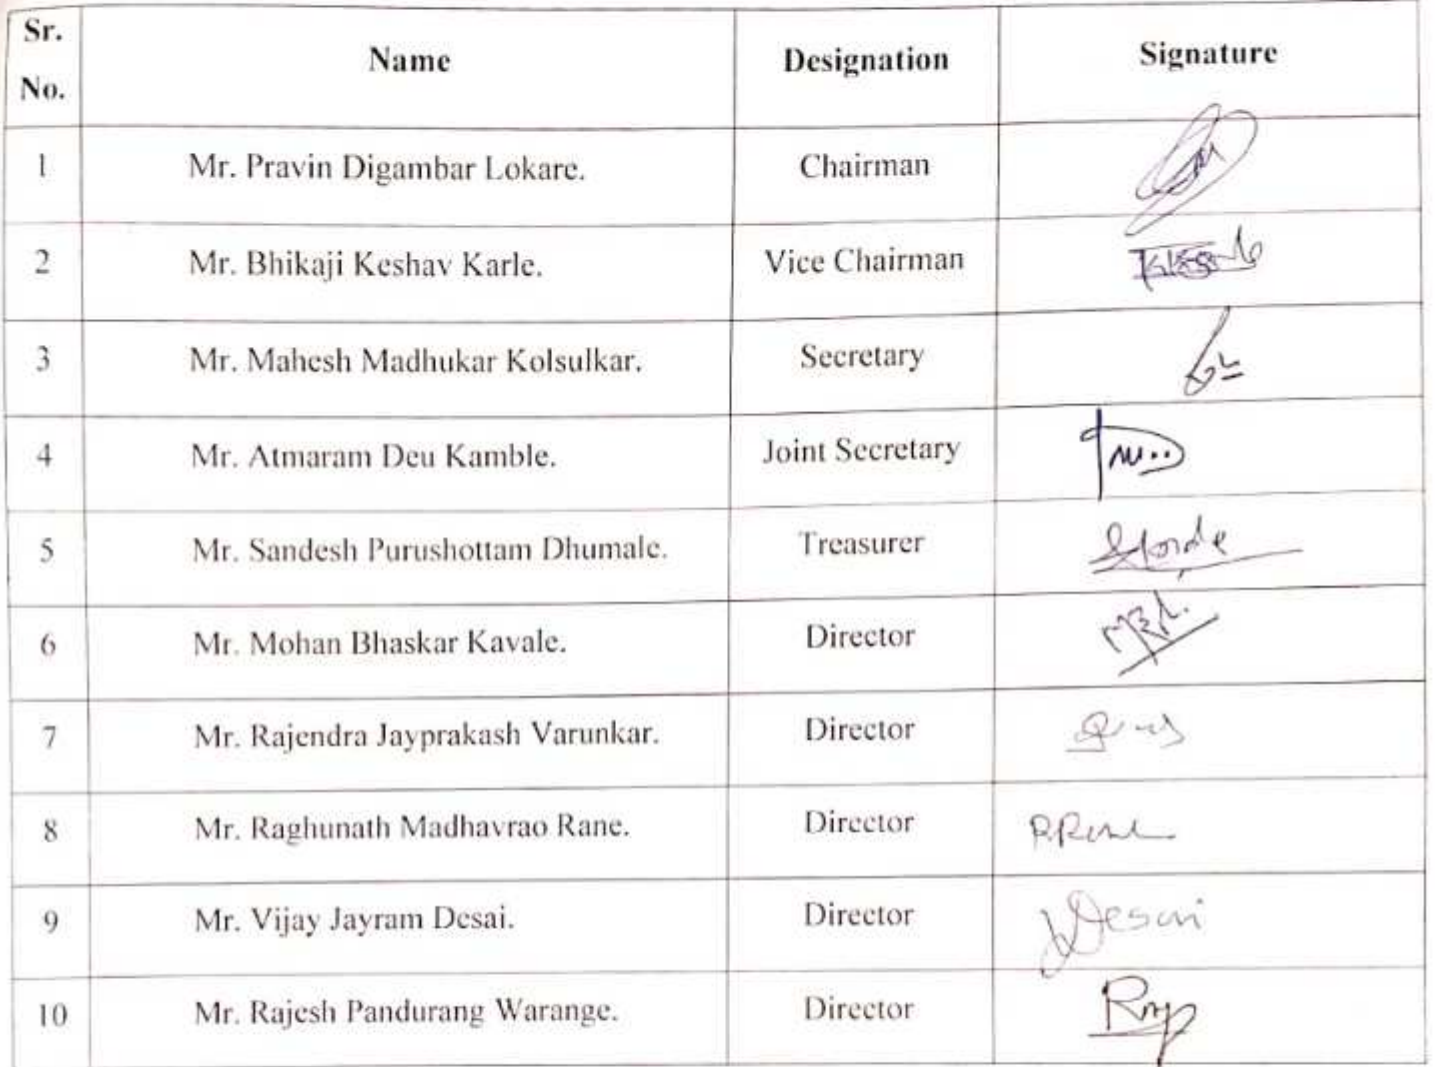 Sr. No. Name Designation Signature
1 Mr. Pravin Digambar Lokare. Chairman
2 Mr. Bhikaji Keshav Karle. Vice Chairman
3 Mr. Mahesh Madhukar Kolsulkar. Secretary
4 Mr. Atmaram Deu Kamble. Joint Secretary
5 Mr. Sandesh Purushottam Dhumale. Treasurer
6 Mr. Mohan Bhaskar Kavale. Director
7 Mr. Rajendra Jayprakash Varunkar. Director
8 Mr. Raghunath Madhavrao Rane. Director
9 Mr. Vijay Jayram Desai. Director Desai
10 Mr. Rajesh Pandurang Warange. Director